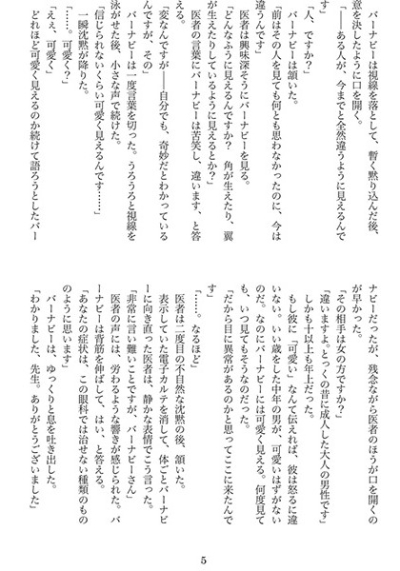 バーナビーは視線を落として、暫く黙り込んだ後、
意を決したように口を開く。
「――ある人が、今までと全然違うように見えるんで
す」
「人、ですか？」
　バーナビーは頷いた。
「前はその人を見ても何とも思わなかったのに、今は
違うんです」
　医者は興味深そうにバーナビーを見る。
「どんなふうに見えるんですか？　角が生えたり、翼
が生えたりしているように見えるとか？」
　医者の言葉にバーナビーは苦笑し、違います、と答
える。
「変なんですが――自分でも、奇妙だとわかっている
んですが、その」
　バーナビーは一度言葉を切った。うろうろと視線を
泳がせた後、小さな声で続けた。
「信じられないくらい可愛く見えるんです……」
　一瞬沈黙が降りた。
「……。可愛く？」
「えぇ、可愛く」
　どれほど可愛く見えるのか続けて語ろうとしたバー
ナビーだったが、残念ながら医者のほうが口を開くの
が早かった。
「その相手は女の方ですか？」
「違いますよ。とっくの昔に成人した大人の男性です」
　しかも十以上も年上だった。
　もし彼に「可愛い」なんて伝えれば、彼は怒るに違
いない。いい歳をした中年の男が、可愛いはずがない
のだ。なのにバーナビーには可愛く見える。何度見て
も、いつ見てもそうなのだ。
「だから目に異常があるのかと思ってここに来たんで
す」
「……。なるほど」
　医者は二度目の不自然な沈黙の後、頷いた。
　表示していた電子カルテを消して、体ごとバーナビ
ーに向き直った医者は、静かな表情でこう言った。
「非常に言い難いことですが、バーナビーさん」
　医者の声には、労わるような響きが感じられた。バ
ーナビーは背筋を伸ばして、はい、と答える。
「あなたの症状は、この眼科では治せない種類のもの
のように思います」
　バーナビーは、ゆっくりと息を吐き出した。
「わかりました、先生。ありがとうございました」
5